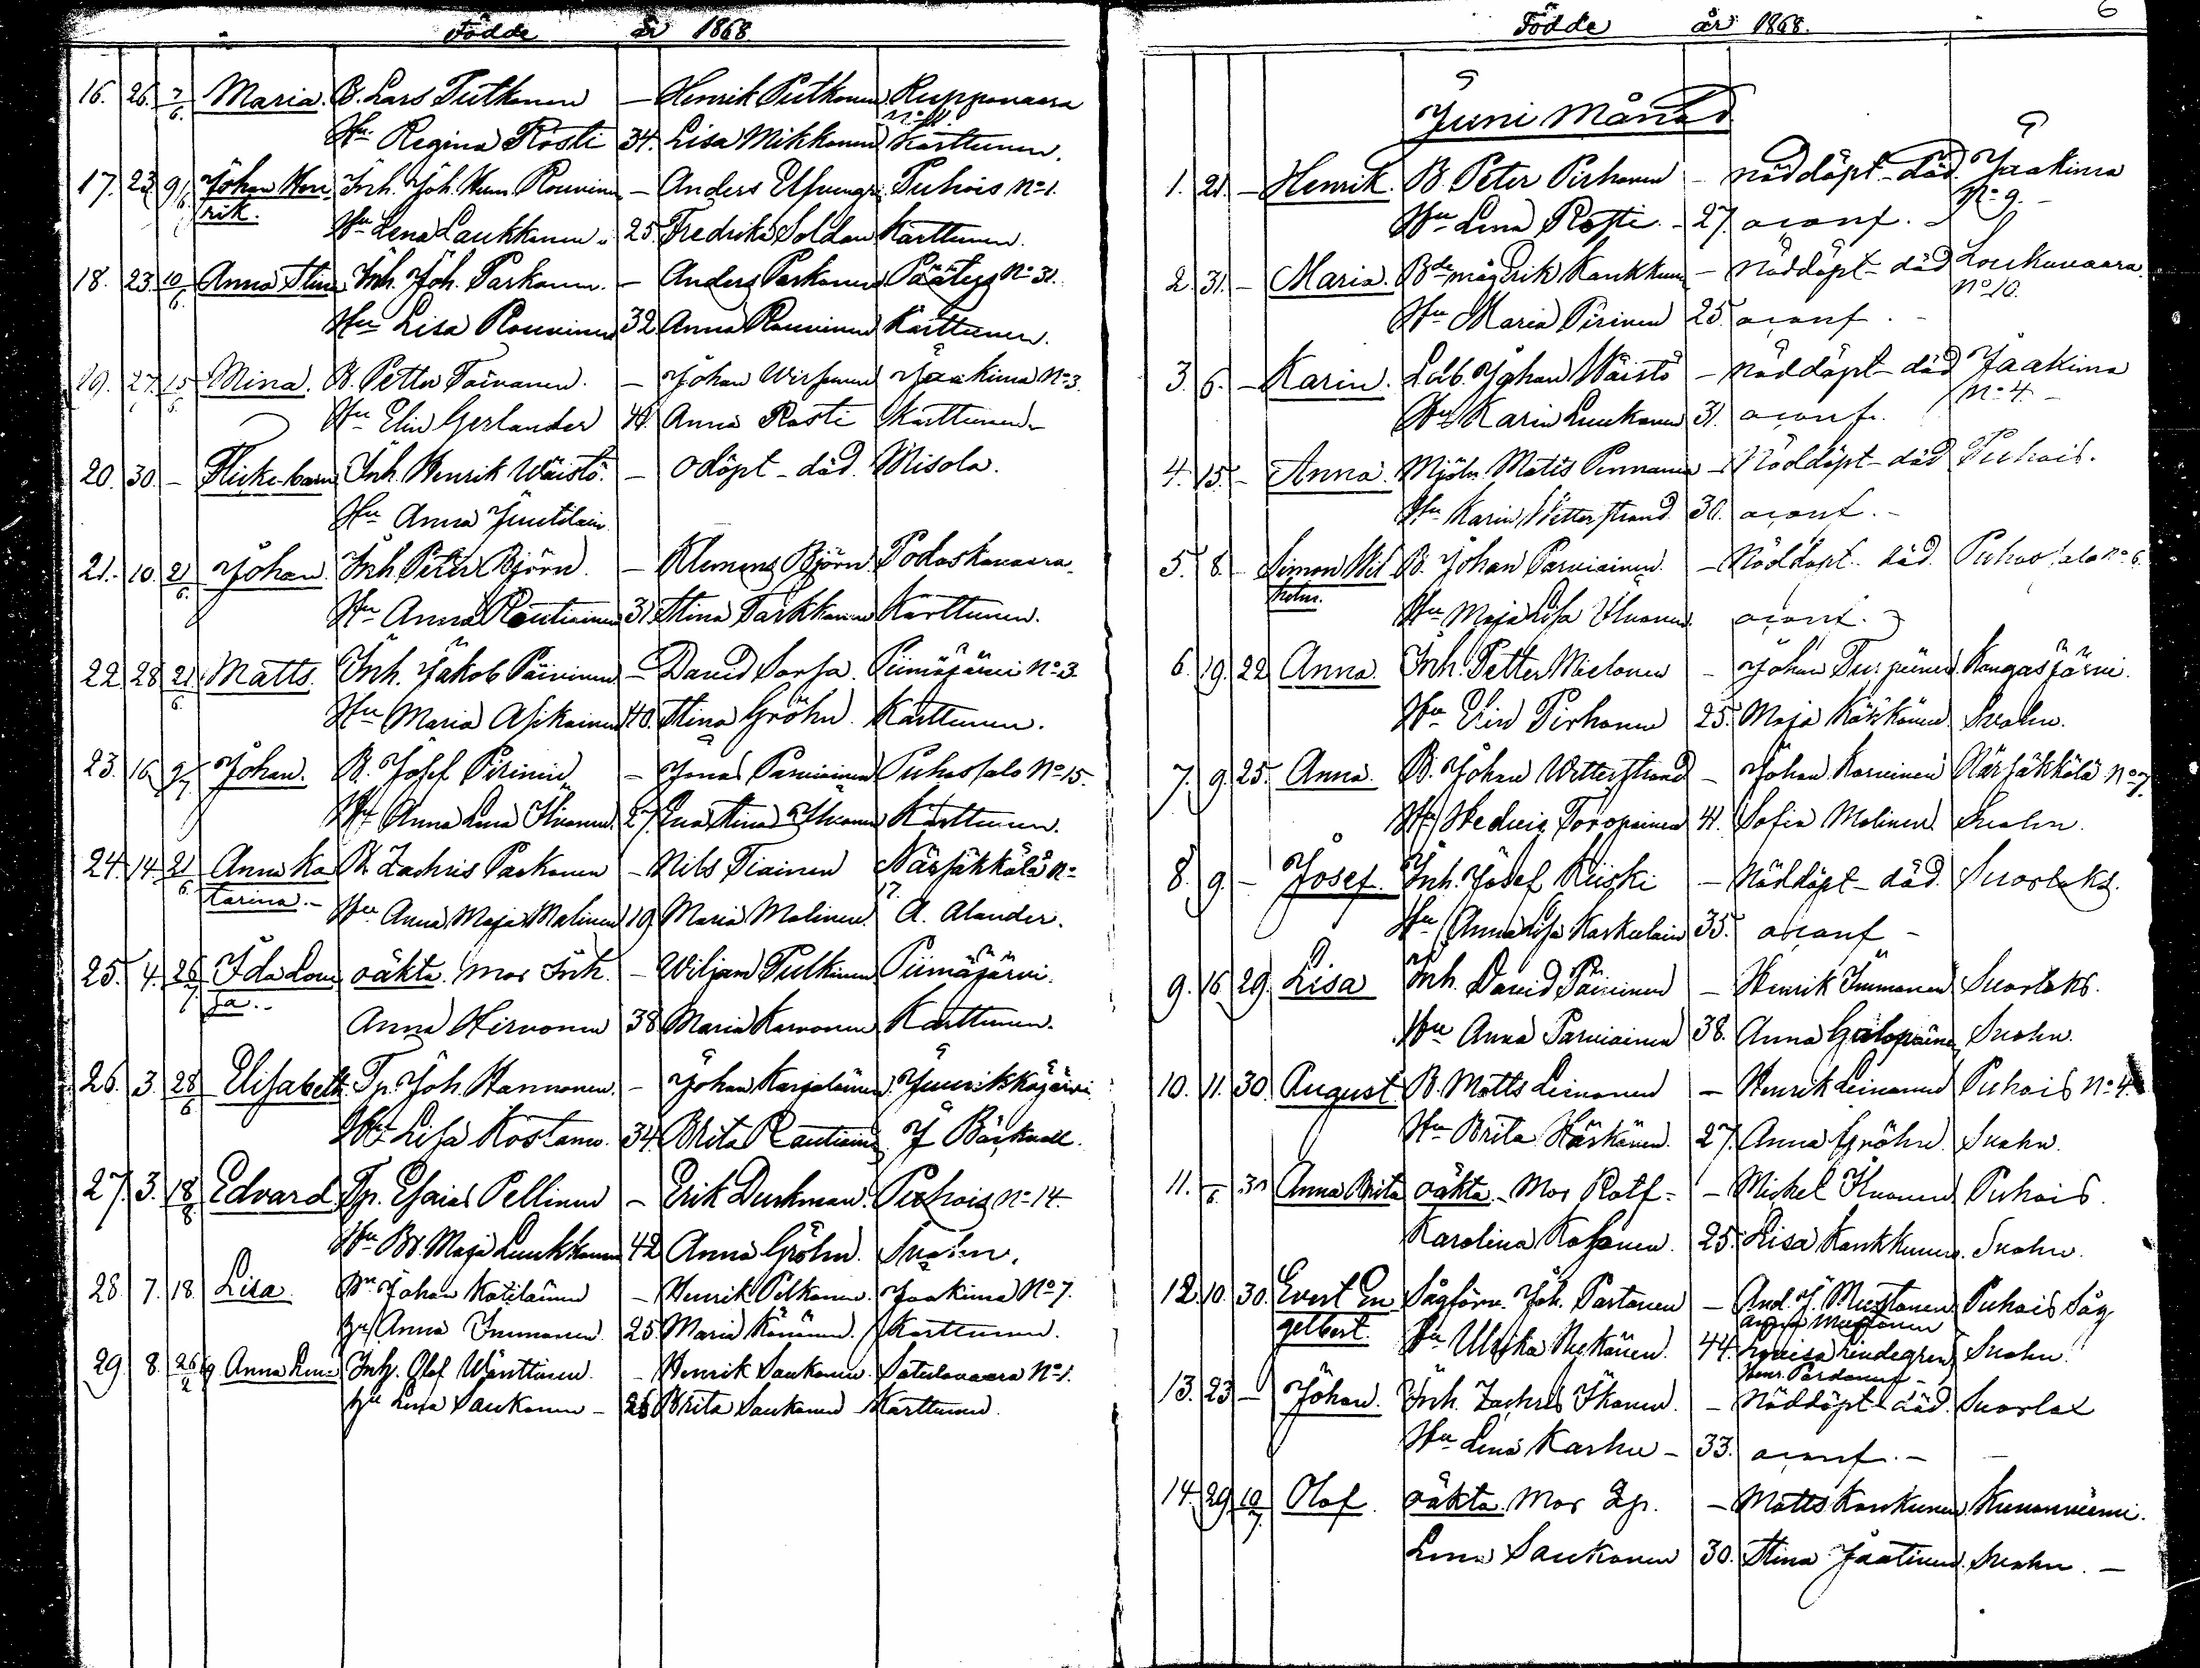 Födde år 1868.
16. 26. 7/6. Maria. B. Lars Putkonen — Henrik Putkonen Ruppovaara
No 11.
Hu Regina Rosti 34. Lisa Mikkonen Karttunen.
17. 23. 9/6. Johan Hen- Inh. Joh. Henr. Rouvinen — Anders Puhois No 1.
rik. Hu Lena Laukkanen 25. Fredrika Soldan Karttunen.
18. 23. 10/6. Anna Stina Inh. Joh. Parkonen. — Anders Parkonen Päätys No 31.
Hu Lisa Rouvinen 32 Anna Rouvinen Karttunen.
19. 27. 15/6. Mina. B. Petter Toivanen. — Johan Wirsunen Jaakima No 3.
Hu Elin Gerlander 41. Anna Rosti Karttunen.
20. 30. — Flicke-barn Inh. Henrik Wäistö. — Odöpt — död. Misola.
Hu Anna Juutilain
21. 10. 21/6. Johan Inh. Peter Björn. — Klemens Björn. Potoskavaara.
Hu Anna Rautiainen 31. Stina Karttunen.
22. 28. 21/6. Matts. Inh. Jakob Päivinen — David Sorsa. Piimäjärvi No 3.
Hu Maria Asikainen 40. Stina Gröhn. Karttunen.
23. 16. 9/7. Johan. B. Josef Pirinen — Jonas Parviainen Puhossalo No 15.
Hu Anna Lena Ihvonen. 27. Eva Stina Ihvonen Karttunen.
24. 14. 21/6. Anna Ka- B. Zachris Paskonen — Nils Tiainen Närsäkkälä No
tarina. — Hu Anna Maja Malinen 19. Maria Malinen. 17. A. Alander.
25. 4. 26/7. Ida Lovi- oäkta. Mor Inh. — Wiljam Pulkinen Piimäjärvi.
sa. — Anna Hirvonen 38 Maria Karvonen Karttunen.
26. 3. 28/6. Elisabeth Tp. Joh. Hannonen. — Johan Karjalainen. Juurikkajärvi
Hu Lisa Kostamo. 34. Brita Rautiainen J Bäckvall.
27. 3. 18/8. Edvard. Tp. Esaias Pellinen — Erik Durkman. Puhois No 14.
Hu Br. Maja Luukkonen 42 Anna Gröhn. Snahn.
28. 7. 18. Lisa. Bn Johan Kotilainen — Henrik Pelkonen. Jaakima No 7.
Hu Anna Immonen. 25 Maria Könönen. Karttunen.
29. 8. 26/2 Anna Lena Inh. Olof Wänttinen. — Henrik Saukonen. Satulavaara No 1.
Hu Lena Saukonen — 26 Brita Saukonen Karttunen.
Födde år 1868. 6
Juni Månad
1. 21. — Henrik. B. Peter Pirhonen — nöddöpt — död. Jaakima
No 9. —
Hu Lena Rosti. — 27. oconf. —
2. 31. — Maria. Bde måg Erik Kaukkunen — Nöddöpt — död Loukuvaara.
No 10.
Hu Maria Pirinen 25. oconf. —
3. 6. — Karin. Ldb. Johan Wäistö — Nöddöpt — död Jaakima
No 4 —
Hu Karin Luukonen 31. oconf.
4. 15. — Anna. Mjöln. Matts Pennanen — Nöddöpt — död Puhois.
Hu Karin Witterstrand 30. oconf. —
5. 8. — Simon Wil- B. Johan Parviainen. — Nöddöpt. död. Puhossalo No 6.
helm. Hu Maja Lisa Ihvonen. oconf.
6. 19. 22 Anna. Inh. Petter Mielonen — Johan Turpeinen Kangasjärvi.
Hu Elin Pirhonen 25. Maja Käkkönen Snahn.
7. 9. 25. Anna. B. Johan Witterstrand — Johan Karvinen Närsäkkälä No 7.
Hu Hedvig Toropainen 41. Sofia Malinen. Snahn.
8. 9. — Josef. Inh. Josef Kiiski — Nöddöpt — död. Suorlaks.
Hu Anna Lisa Kaskelain 35. oconf —
9. 16. 29. Lisa Inh. David Päivinen — Henrik Immonen Suorlaks.
Hu Anna Parviainen 38. Anna Snahn.
10. 11. 30. August. B. Matts Leinonen — Henrik Leinonen Puhois No 4.
Hu Brita Härkönen. 27. Anna Gröhn. Snahn.
11. 30 Anna Brita oäkta. — Mor Rotf — — Michel Ihvonen Puhois.
Karolina Kosonen. 25. Lisa Kaukkunen. Snahn.
12. 10. 30. Evert En- Sågförv. Joh. Partanen — And. J. Mustonen Puhois Såg
gelbert. Anna Mustonen
Hu Ulrika Reskönen. 44. Lovisa Lindegren Snahn.
Henr. Pardanen —
13. 23 — Johan. Inh. Zachris Ikonen. — Nöddöpt — död. Suorlax
Hu Lena Karhu — 33. oconf. — —
14. 29. 19/7. Olof. oäkta. Mor Tp. — Matts Kaukkunen. Kumonniemi.
Lena Saukonen 30. Stina Jaatinen. Snahn. —